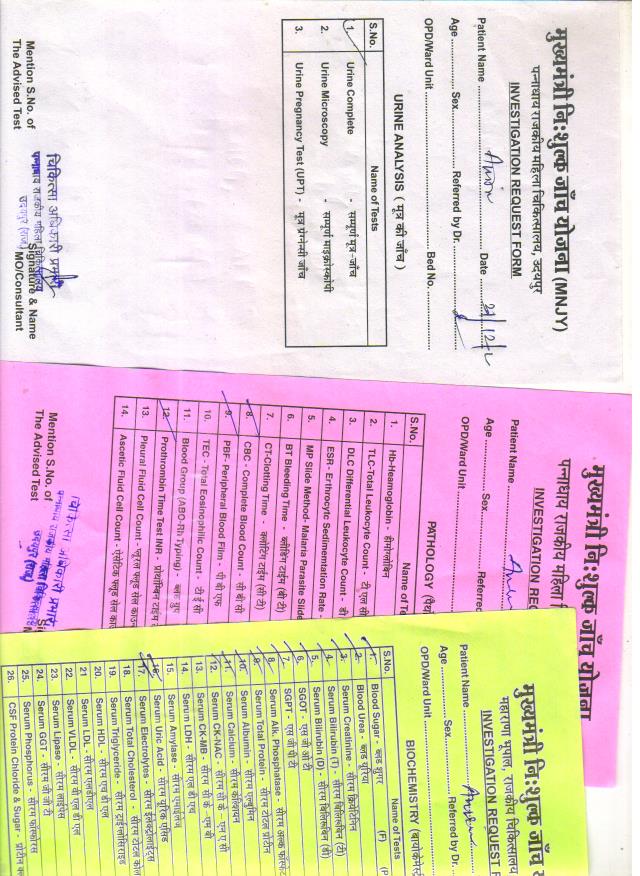 मुख्यमंत्री नि:शुल्क जाँच योजना (MNJY)
पन्नाधाय राजकीय महिला चिकित्सालय, उदयपुर
INVESTIGATION REQUEST FORM
Patient Name Date
Age Sex Referred by Dr.
OPD/Ward Unit Bed No.
URINE ANALYSIS ( मूत्र की जाँच )
S.No. Name of Tests
1. Urine Complete - सम्पूर्ण मूत्र-जाँच
2. Urine Microscopy - सम्पूर्ण माइक्रोस्कोपी
3. Urine Pregnancy Test (UPT) - मूत्र प्रेग्नेन्सी जाँच
चिकित्सा अधिकारी प्रभारी
पन्नाधाय राजकीय महिला चिकित्सालय
उदयपुर (राज.)
Mention S.No. of Signature & Name
The Advised Test MO/Consultant
मुख्यमंत्री नि:शुल्क जाँच योजना
पन्नाधाय राजकीय महिला
INVESTIGATION REQ
Patient Name
Age Sex Referred
OPD/Ward Unit
PATHOLOGY (पैथो
S.No. Name of Te
1. Hb-Heamoglobin - हीमोग्लोबिन
2. TLC-Total Leukocyte Count - टी एल सी
3. DLC Differential Leukocyte Count - डी
4. ESR - Erthrocyte Sedimentation Rate -
5. MP Slide Method- Malaria Parasite Slide
6. BT Bleeding Time - ब्लीडिंग टाईम (बी टी)
7. CT-Clotting Time - क्लोटिंग टाईम (सी टी)
8. CBC - Complete Blood Count - सी बी सी
9. PBF- Peripheral Blood Film - पी बी एफ
10. TEC - Total Eosinophilic Count - टी ई सी
11. Blood Group (ABO-Rh Typing) - ब्लड ग्रुप
12. Prothrombin Time Test INR - प्रोथ्रोम्बिन टाइम
13. Pleural Fluid Cell Count - प्लूरल फ्लूड सेल काउन
14. Ascetic Fluid Cell Count - ऐसेटिक फ्लूड सेल का
चिकित्सा अधिकारी प्रभारी
पन्नाधाय राजकीय महिला चिकित्सालय
उदयपुर (राज.)
Mention S.No. of
The Advised Test
मुख्यमंत्री नि:शुल्क जाँच यो
महाराणा भूपाल, राजकीय चिकित्सालय
INVESTIGATION REQUEST F
Patient Name
Age Sex Referred by Dr.
OPD/Ward Unit
BIOCHEMISTRY (बायोकेमेस्ट्
S.No. Name of Tests
1. Blood Sugar - ब्लड शुगर (F) (P
2. Blood Urea - ब्लड यूरिया
3. Serum Creatinine - सीरम क्रिएटिनिन
4. Serum Bilirubin (T) - सीरम बिलिरूबिन (टी)
5. Serum Bilirubin (D) - सीरम बिलिरूबिन (डी)
6. SGOT - एस जी ओ टी
7. SGPT - एस जी पी टी
8. Serum Alk. Phosphatase - सीरम अल्क फॉस्फे
9. Serum Total Protein - सीरम टोटल प्रोटीन
10. Serum Albumin - सीरम एल्बुमिन
11. Serum Calcium - सीरम कैल्शियम
12. CK-NAC - सी के - एन ए सी
13. CK-MB - सी के - एम बी
14. Serum LDH - सीरम एल डी एच
15. Serum Amylase - सीरम एमाइलेज
16. Serum Uric Acid - सीरम यूरिक एसिड
17. Serum Electrolytes - सीरम इलेक्ट्रोलाइट्स
18. Serum Total Cholesterol - सीरम टोटल कोले
19. Serum Triglyceride - सीरम ट्राईग्लीसिराइड
20. Serum HDL - सीरम एच डी एल
21. Serum LDL - सीरम एलडीएल
22. Serum VLDL - सीरम वी एल डी एल
23. Serum Lipase - सीरम लाइपेस
24. Serum GGT - सीरम जी जी टी
25. Serum Phosphorus - सीरम फॉस्फोरस
26. CSF Protein Chloride & Sugar - प्रोटीन क्